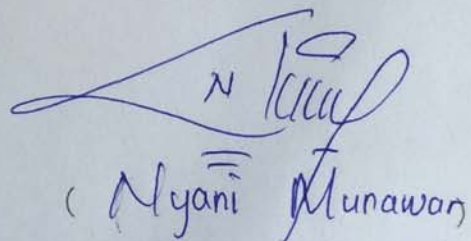 ( Nyani Munawar)